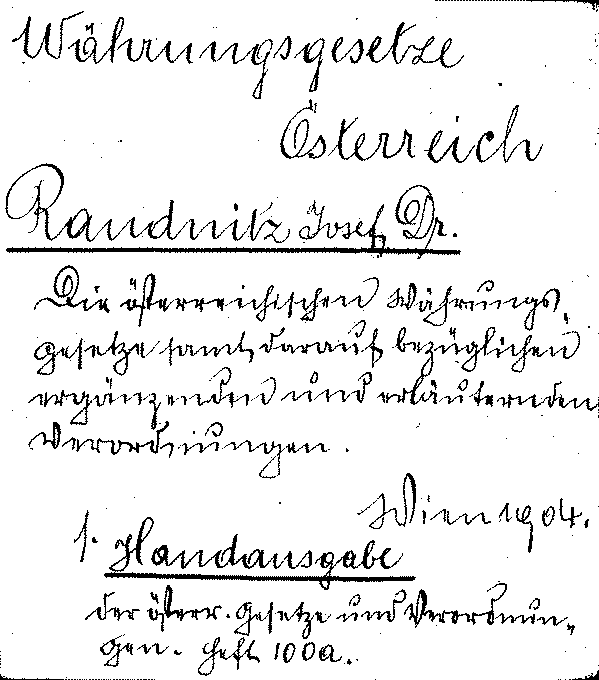 Währungsgesetze
Österreich
Raudnitz Josef, Dr.
Die österreichischen Währungs-
gesetze samt darauf bezüglichen
ergänzenden und erläuternden
Verordnungen.
Wien 1904.
s. Handausgabe
der österr. Gesetze und Verordnun-
gen. Heft 100a.